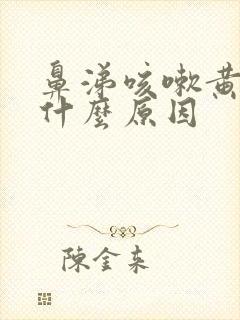 鼻涕咳嗽黄
什麼原因
陳金来